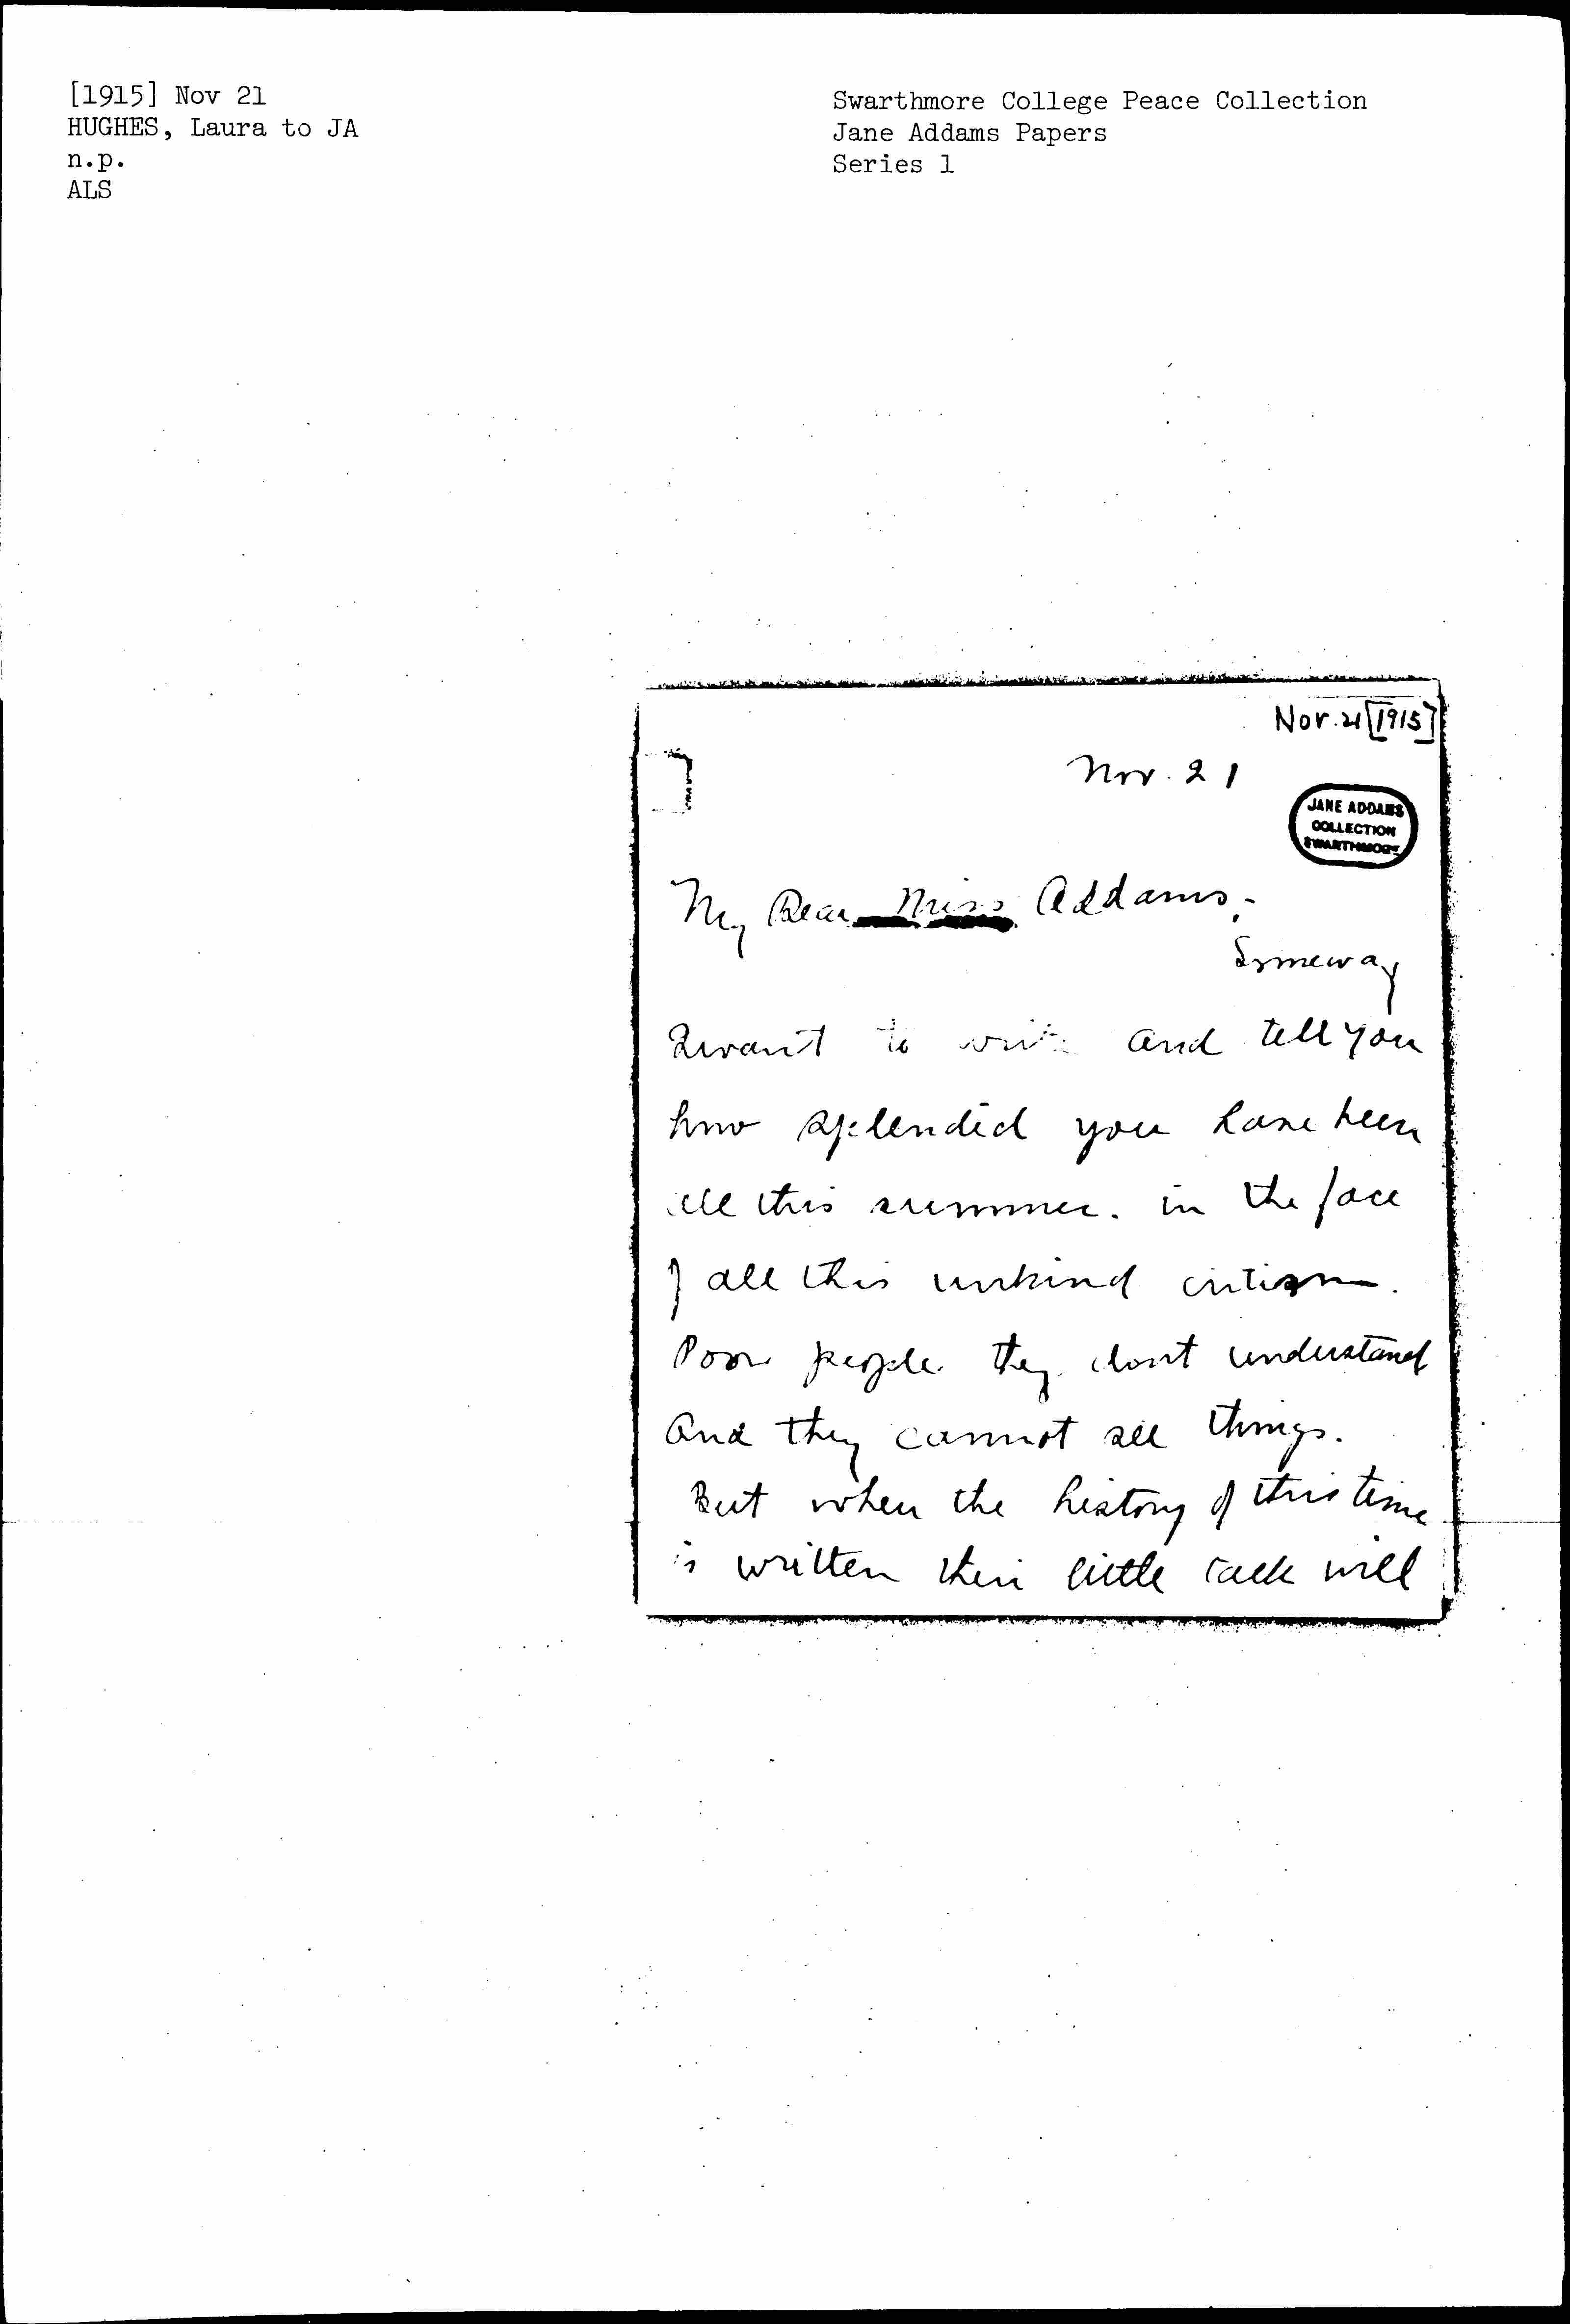 [1915] Nov 21
HUGHES, Laura to JA
n.p.
ALS
Swarthmore College Peace Collection
Jane Addams Papers
Series 1
Nov. 21 [1915]
Nov. 21
JANE ADDAMS
COLLECTION
SWARTHMORE
My Dear Miss Addams,-
Someway
I want to write and tell you
how splendid you have been
all this summer. in the face
of all this unkind critism.
Poor people they dont understand
And they cannot see things.
But when the history of this time
is written their little talk will